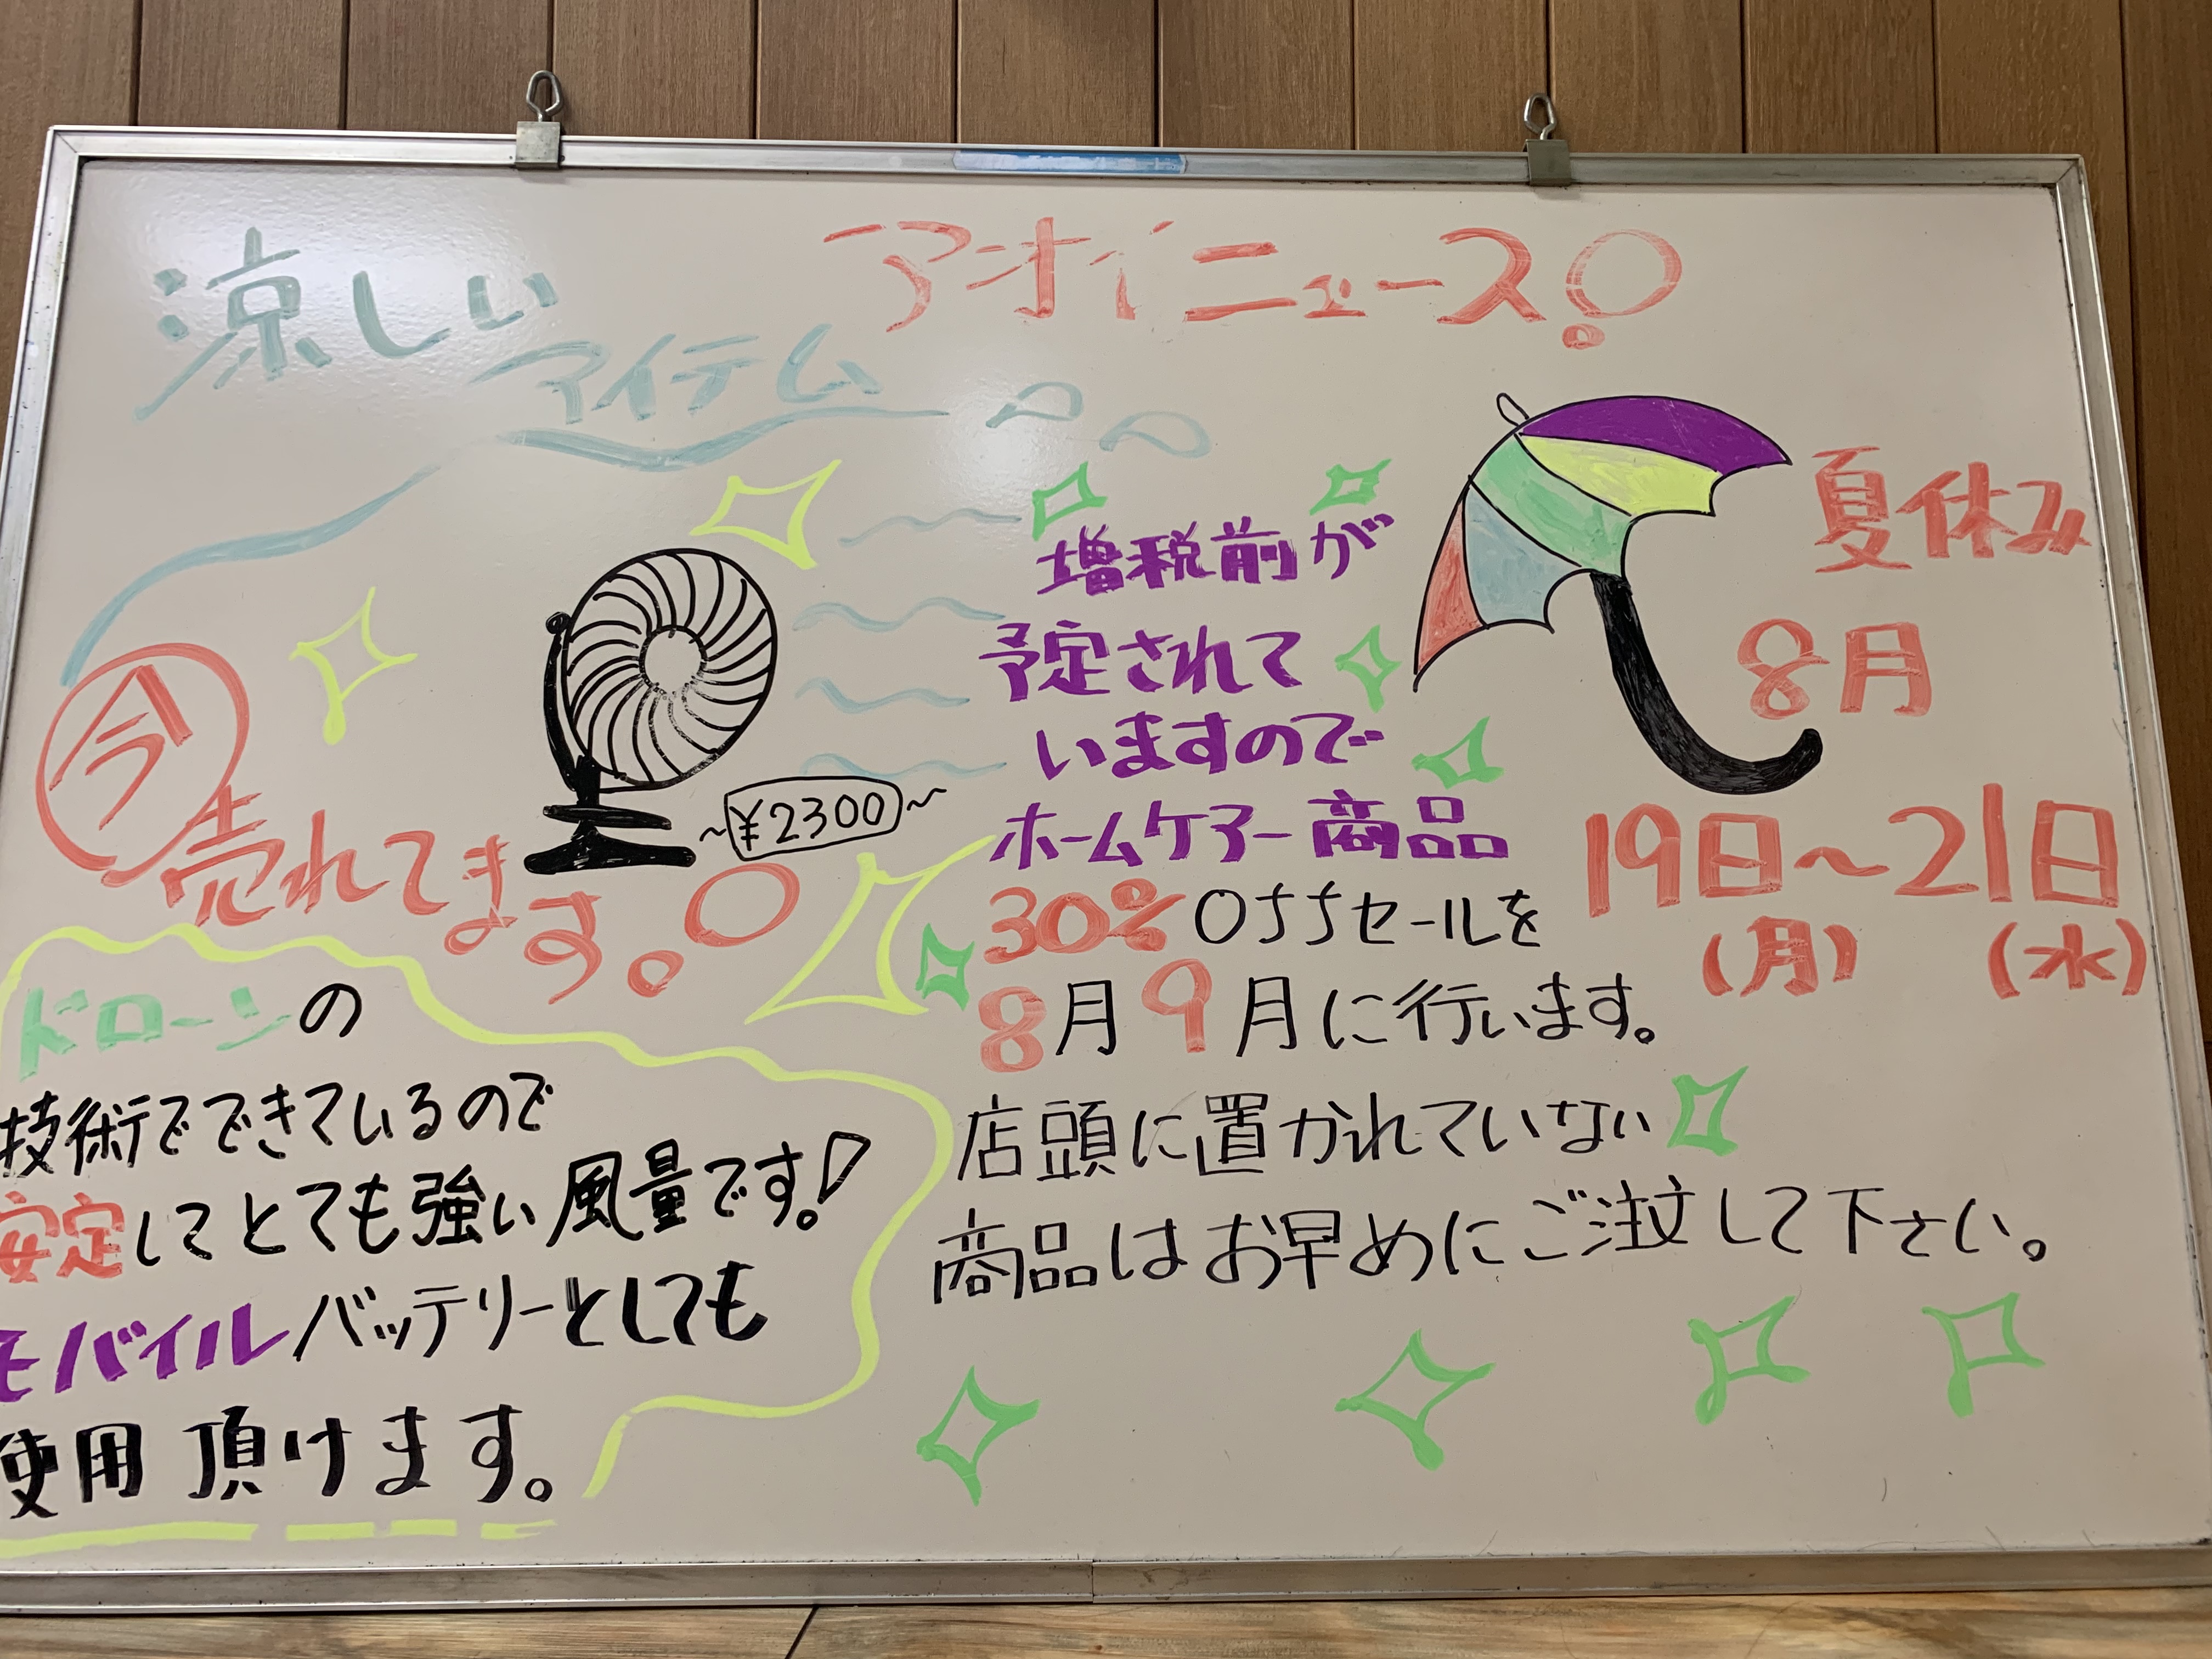 アオイニュース!
涼しい
アイテム
今
売れてます。
¥2300
ドローンの
技術でできているので
安定してとても強い風量です!
モバイルバッテリーとしても
使用頂けます。
増税前が
予定されて
いますので
ホームケアー商品
30%Offセールを
8月9月に行います。
店頭に置かれていない
商品はお早めにご注文して下さい。
夏休み
8月
19日~21日
(月) (水)